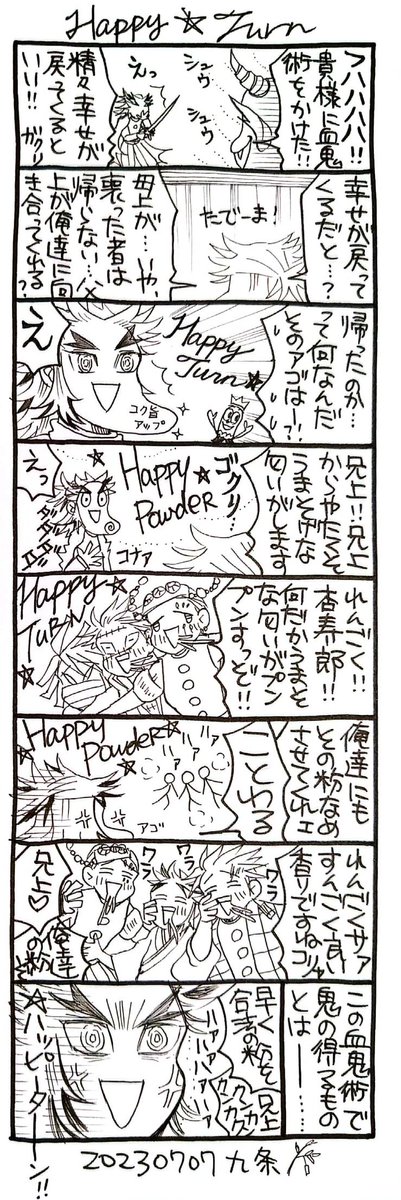 Happy☆Turn
フハハハハ!!
貴様に血鬼
術をかけた!!
シュウ
シュウ
えっ
精々幸せが
戻ってくると
いい!!
ガクリ
幸せが戻って
くるだと…?
たでーま!
母上が…いや、
喪った者は
帰らない…父
上が俺達に向
き合ってくれる?
帰ったのか…
って何なんだ
そのアゴはー!?
Happy
Turn☆
え
コク旨
アップ
兄上!!兄上
からやたらそ
うまそげな
匂いがします
ゴクリ…
Happy☆
Powder
えっ
コナァ
れんごく!!
杏寿郎!!
何だかうまそ
な匂いがプン
プンすっぞ!!
Happy☆
Turn
俺達にも
その粉なめ
させてくれェ
ことわる
ハァ
ハァ
Happy☆
Powder
アゴ
れんごくサァ
すんごく良い
香りですねコリャ
ワラ
ワラ
ワラ
兄上♡
俺幸
の粉
この血鬼術で
鬼の得るもの
とは――…
早く粉を兄上
ハァハァハァ
☆ハッピーターーン!!
20230707 九条